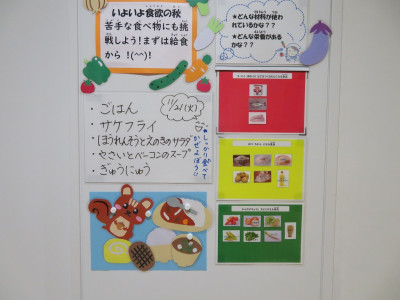 いよいよ食欲の秋
苦手な食べ物にも挑
戦しよう！まずは給食
から！(^^)!
★どんな材料が使わ
れているかな？？
★どんな栄養がある
かな？？
11/21(火)
・ごはん
・サケフライ
・ほうれんそうとえのきのサラダ
・やさいとベーコンのスープ
・ぎゅうにゅう
★しっかり食べて
かぜよぼう!!